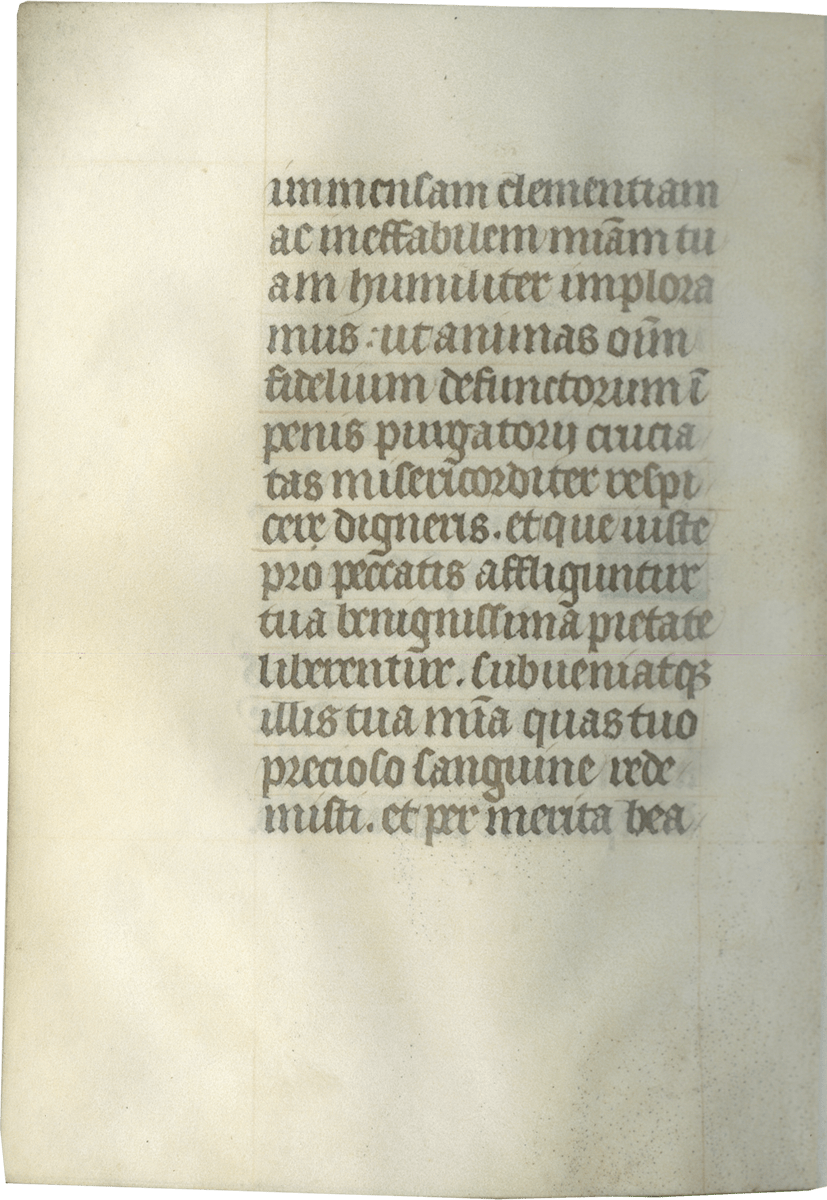 immensam clementiam
ac ineffabilem miām tu
am humiliter implora
mus : ut animas oīm
fidelium defunctorum ī
penis purgatorij crucia
tas misericorditer respi
cere digneris . et que iuste
pro peccatis affliguntur
tua benignissima pietate
liberentur . subueniatqꝫ
illis tua mīa quas tuo
precioso sanguine rede
misti . et per merita bea